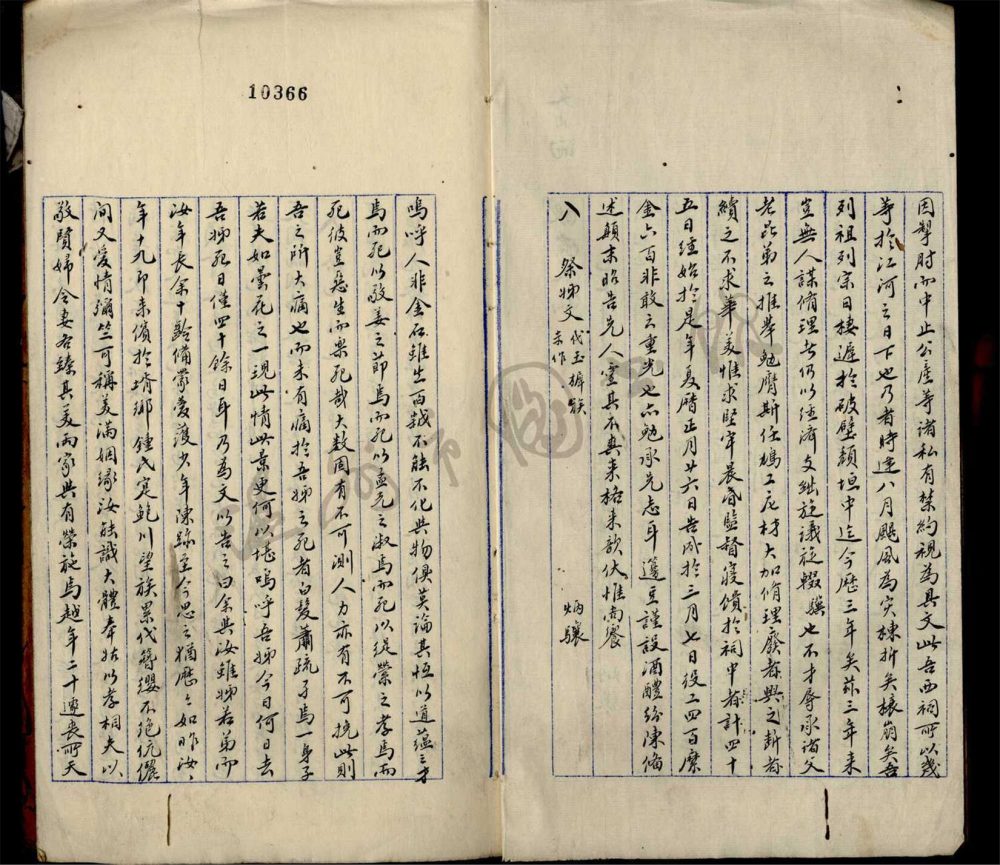 因掣肘而中止公產等諸私有禁約視為具文此吾西祠所以幾
等於江河之日下也乃者時逆八月颶風為灾棟折矣榱崩矣吾
列祖列宗日棲遲於破壁頹垣中迄今歷三年矣茲三年來
豈無人謀脩理者仍以經濟支絀旋議旋輟驤也不才辱承諸父
老昆弟之推舉勉膺斯任鳩工庀材大加脩理廢者興之斷者
續之不求華美惟求堅牢晨昏監督寢饋於祠中者計四十
五日經始於是年夏曆正月廿六日告成於三月七日役工四百縻
金六百非敢云重光也亦勉承先志耳籩豆謹設酒醴紛陳備
述顛末昭告先人靈其不爽來格來歆伏惟尚饗
八 祭姊文 代玉樨族弟作 炳驤
10366
嗚呼人非金石雖生百越不能不化與物俱莫論其恒以道蘊之才
焉而死以敬姜之節焉而死以孟光之淑焉而死以緹縈之孝焉而
死彼豈惡生而樂死哉大數固有不可測人力亦有不可挽此則
吾之所大痛也而未有痛於吾姊之死者白髮蕭疏孑焉一身子
若夫如曇花之一現此情此景更何以堪嗚呼吾姊今日何日去
吾姊死日僅四十餘日耳乃為文以告之曰余與汝雖姊若弟而
汝年長余十齡備蒙愛護少年陳跡至今思之猶歷々如昨汝々
年十九即來儐於瑯琊鍾氏寔鮑川望族累代簪纓不絕伉儷
間又愛情彌篤可稱美滿姻緣汝能識大體奉姑以孝相夫以
敬賢婦令妻各臻其美而家興有榮施焉越年二十遽喪所天